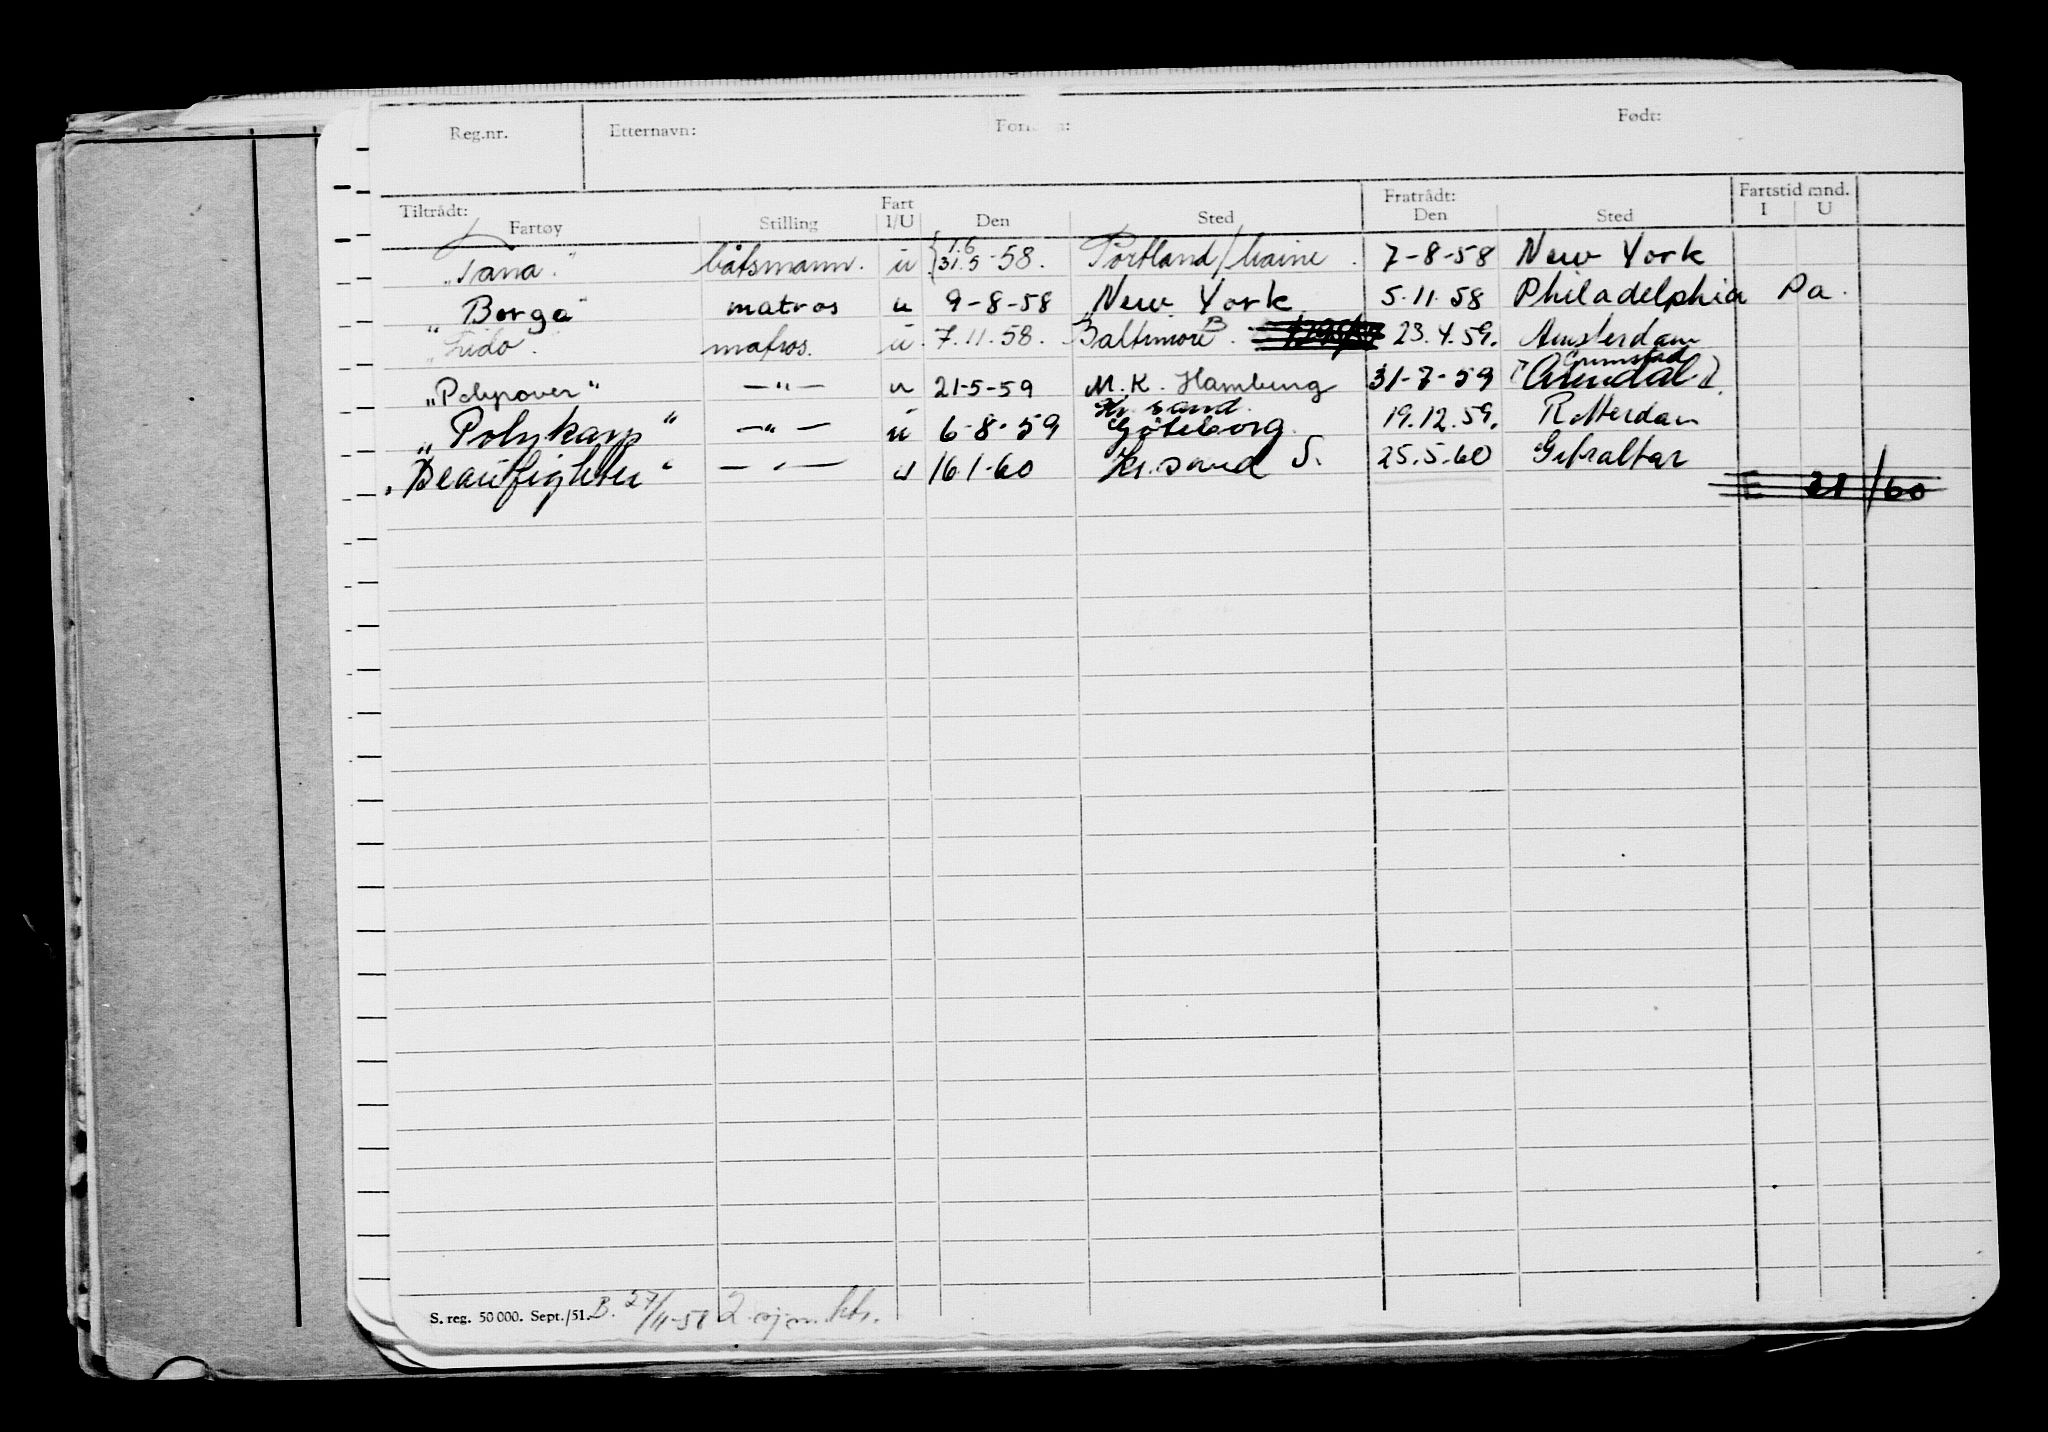 Reg.nr. Etternavn: Født:
Tiltrådt: Fart Fratrådt: Fartstid mnd.
Fartøy Stilling I/U Den Sted Den Sted I U
„Tana." båtsmann. u {1.6 31.5-58. Portland/Maine. 7-8-58 New York
„Borga" matros u 9-8-58 New York 5.11.58 Philadelphia Pa.
„Lido. matros. u. 7.11.58. Baltimore B. 23.4.59. Amsterdam
Grimstad
„Polyrover" —"— u 21-5-59 M.K. Hamburg 31-7-59 (Arendal).
Kr. sand.
„Polykarp" —"— u 6-8-59 Göteborg. 19.12.59. Rotterdam
„Beaufighter" —"— u 16.1-60 Kr. sand S. 25.5.60 Gibraltar
E 21/60
S. reg. 50 000. Sept./51. B. 27/11-58 2